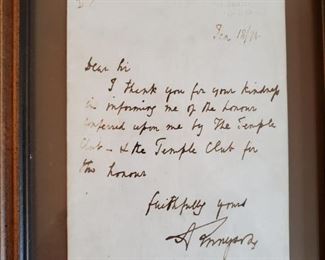 Jan 18/
Dear Sir
I thank you for your kindness
in informing me of the honour
conferred upon me by The Temple
Club – & the Temple Club for
the honour
faithfully yours
A Tennyson